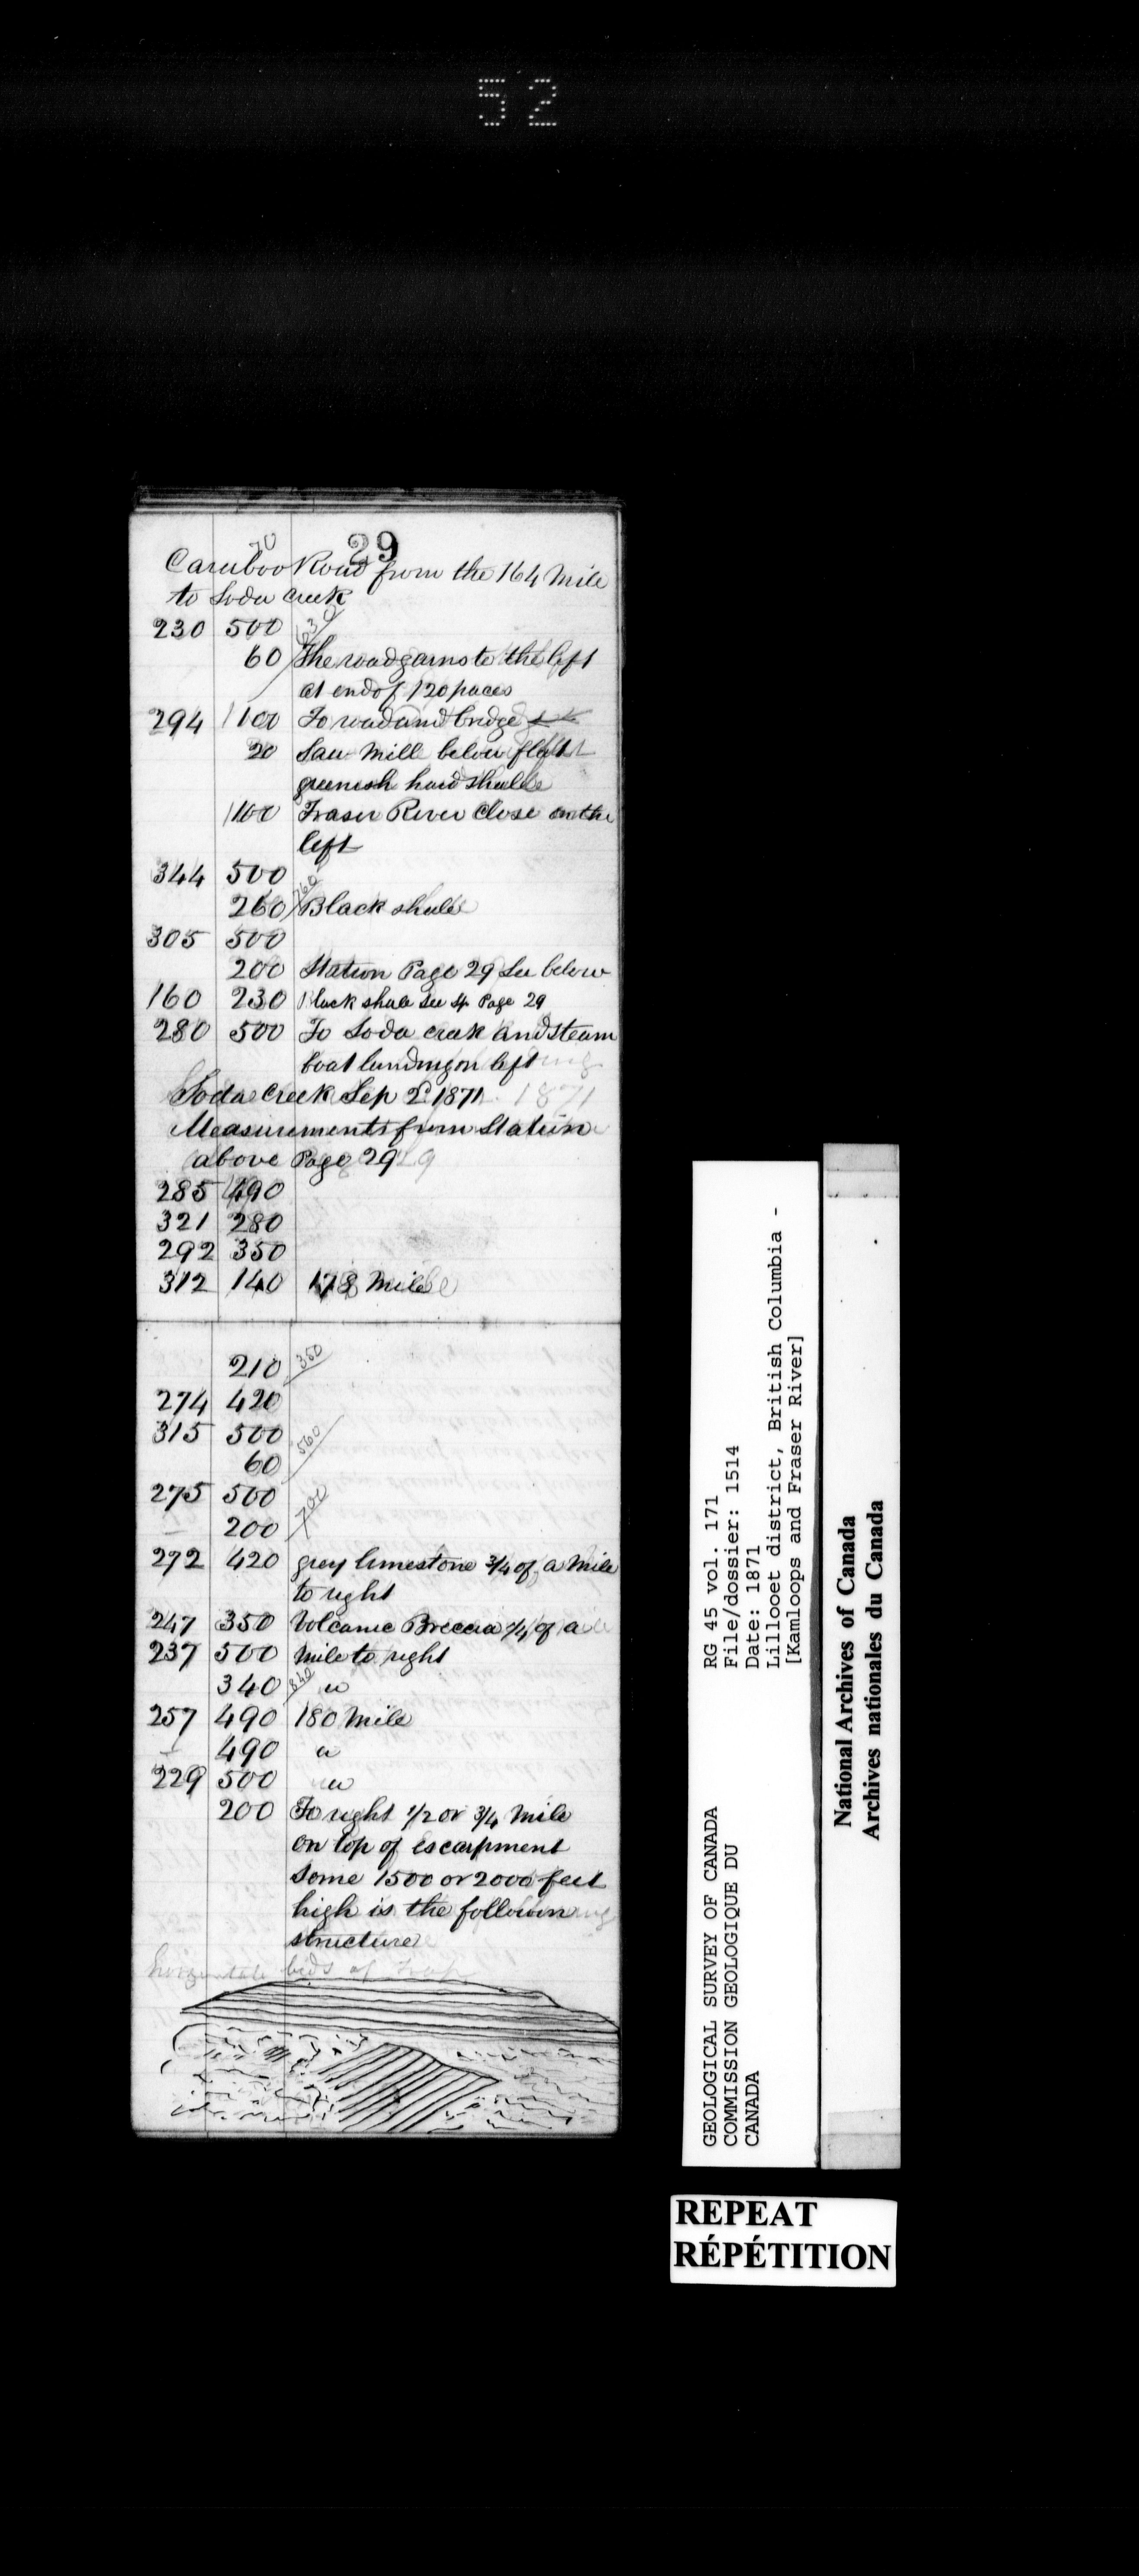 52
29
70
Cariboo Road from the 164 Mile
to Soda Creek
230 500
60 The road gains to the left
at end of 120 paces
294 100 To road and bridge
20 Saw Mill below flat
greenish hard shale
100 Fraser River close on the
left
344 500
260 760 Black shale
305 500
200 Station Page 29 See below
160 230 Black shale See Page 29
280 500 To Soda creek and steam
boat landing on left
Soda Creek Sep 2 1871
Measurements from Station
above Page 29
285 490
321 280
292 350
312 140 178 Mile
210 350
274 420
315 500
60 560
275 500
200 700
272 420 grey limestone 3/4 of a Mile
to right
247 350 Volcanic Breccia 1/4 of a
237 500 Mile to right
340 840 "
257 490 180 Mile
490 "
229 500 "
200 To right 1/2 or 3/4 Mile
on top of escarpment
some 1500 or 2000 feet
high is the following
structure
horizontal beds of Trap
GEOLOGICAL SURVEY OF CANADA
COMMISSION GEOLOGIQUE DU
CANADA
RG 45 vol. 171
File/dossier: 1514
Date: 1871
Lillooet district, British Columbia -
[Kamloops and Fraser River]
National Archives of Canada
Archives nationales du Canada
REPEAT
RÉPÉTITION